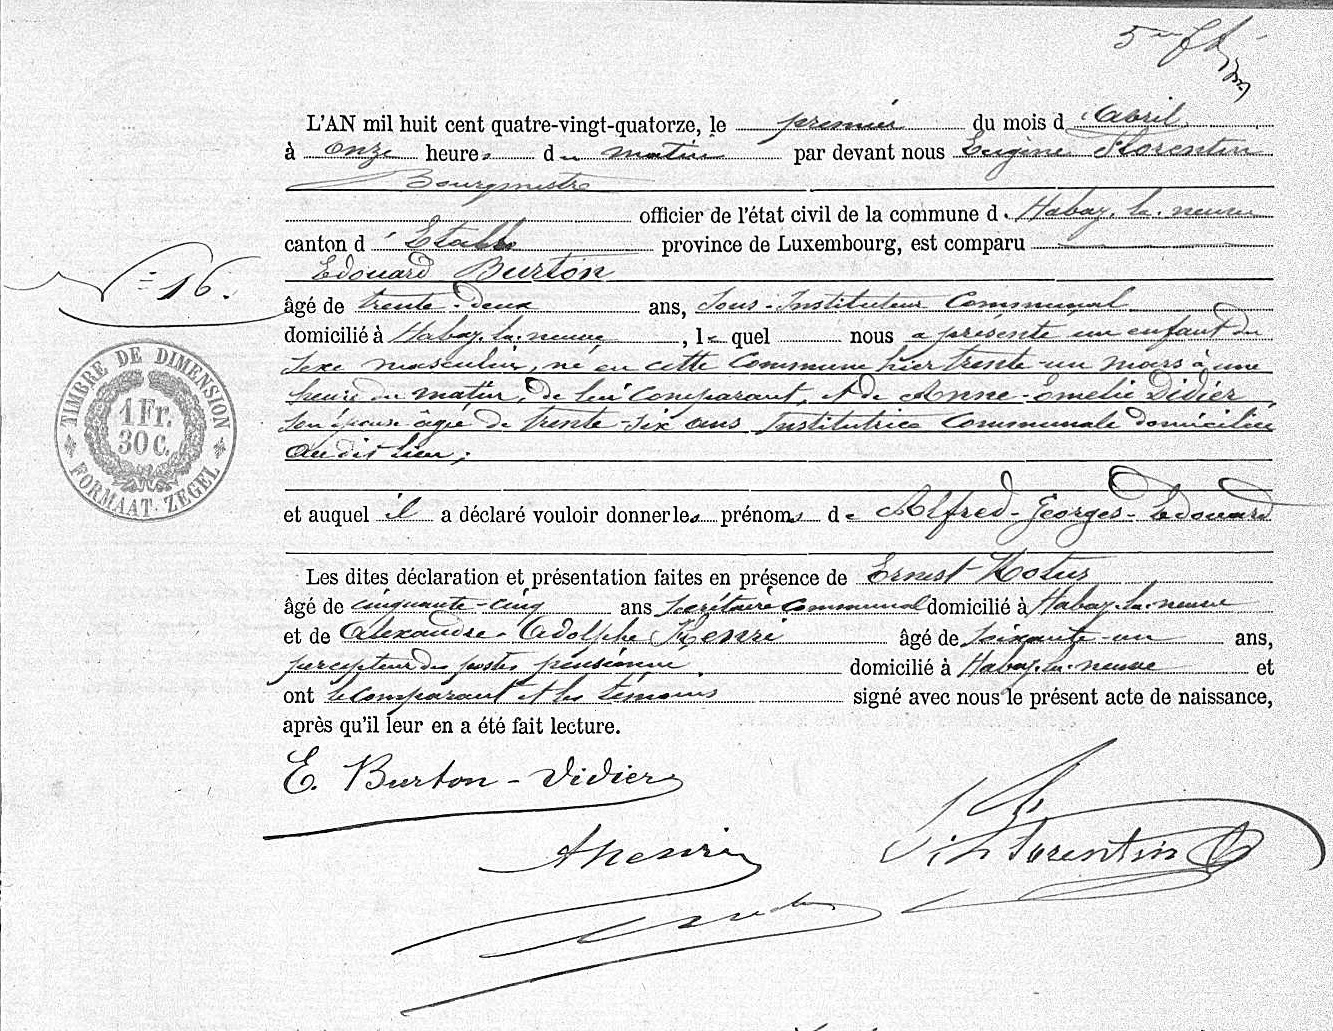 L'AN mil huit cent quatre-vingt-quatorze, le premier du mois d'Avril
à onze heures du matin par devant nous Eugène Florentin
Bourgmestre
officier de l'état civil de la commune d. Habay-la-neuve
canton d'Etalle province de Luxembourg, est comparu
Edouard Burton
N° 16.
âgé de trente-deux ans, Sous-Instituteur Communal
domicilié à Habay-la-neuve, lequel nous a présenté un enfant du
sexe masculin, né en cette Commune hier trente-un mars à une
heure du matin, de lui Comparant, et de Anne-Emelie Didier
son épouse âgée de trente-six ans Institutrice Communale domiciliée
audit lieu;
TIMBRE DE DIMENSION
1 Fr.
30 C.
FORMAAT-ZEGEL
et auquel il a déclaré vouloir donner les prénoms de Alfred-Georges-Edouard
Les dites déclaration et présentation faites en présence de Ernest
âgé de cinquante-cinq ans Secrétaire Communal domicilié à Habay-la-neuve
et de Alexandre-Adolphe Henri âgé de soixante-un ans,
percepteur des postes pensionné domicilié à Habay-la-neuve et
ont le comparant et les témoins signé avec nous le présent acte de naissance,
après qu'il leur en a été fait lecture.
E. Burton-Didier
AHenri
Florentin